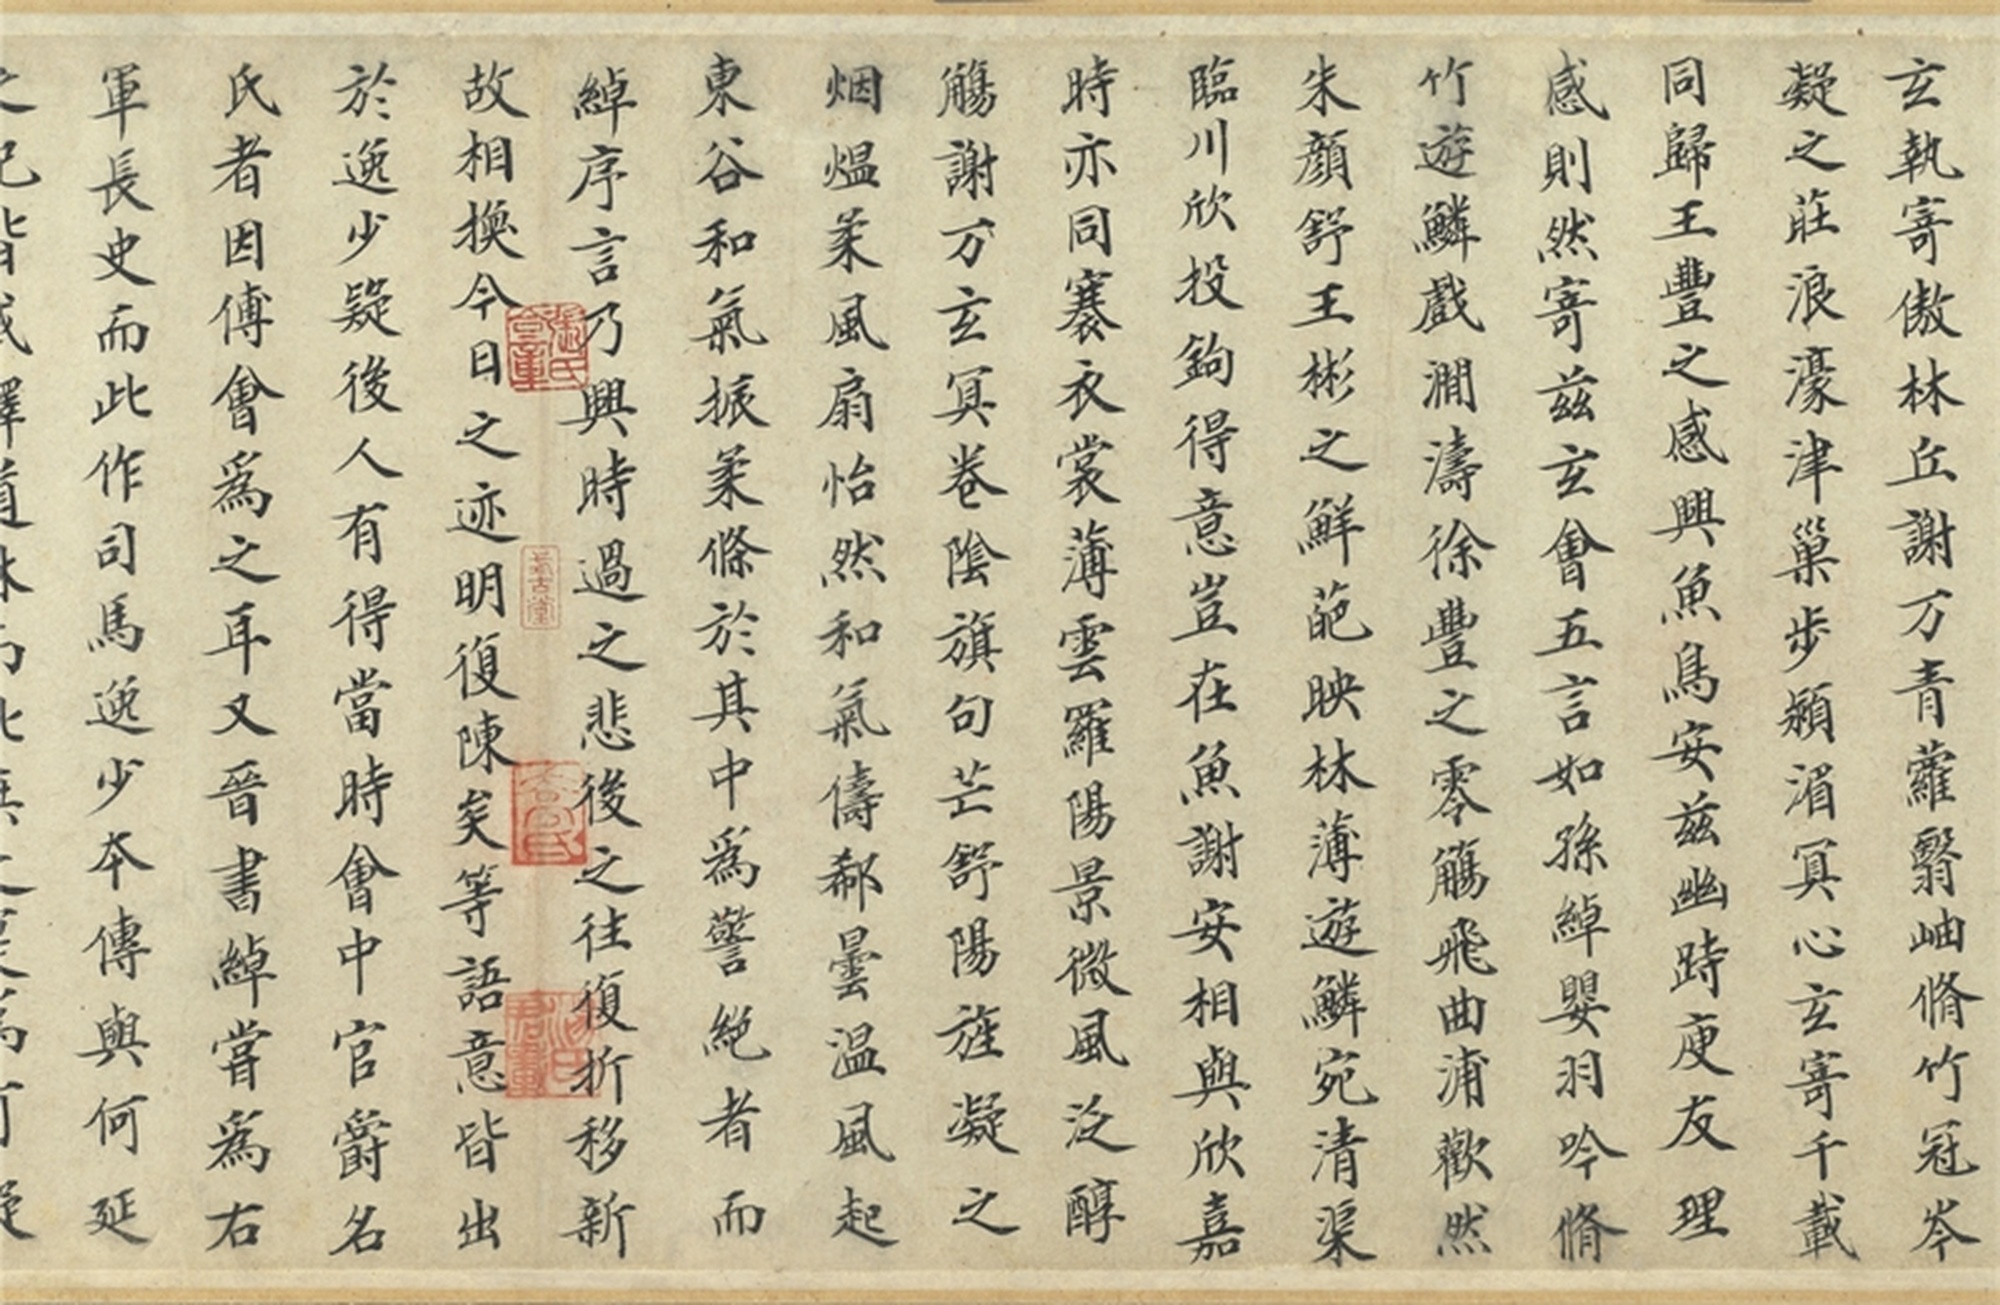 玄執寄傲林丘謝万青蘿翳岫脩竹冠岑
凝之莊浪濠津巢步潁湄冥心玄寄千載
同歸王豐之感興魚鳥安茲幽跱庾友理
感則然寄茲玄會五言如孫綽嬰羽吟脩
竹遊鱗戲澗濤徐豐之零觴飛曲浦歡然
朱顏舒王彬之鮮葩映林薄遊鱗宛清渠
臨川欣投鉤得意豈在魚謝安相與欣嘉
時亦同褰衣裳薄雲羅陽景微風泛醇
觴謝万玄冥卷陰旗句芒舒陽旌凝之
烟熅柔風扇怡然和氣儔郗曇溫風起
東谷和氣振柔條於其中為警絶者而
綽序言乃興時過之悲後之往復折移新
故相換今日之迹明復陳矣等語意皆出
於逸少疑後人有得當時會中官爵名
氏者因傅會為之耳又晉書綽嘗為右
軍長史而此作司馬逸少本傳與何延